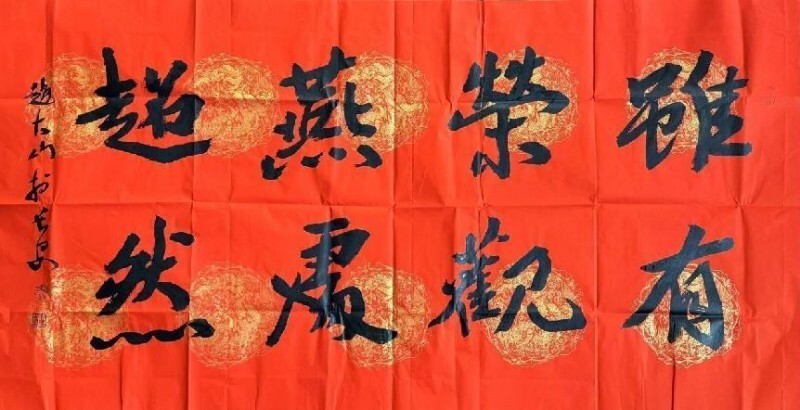 雖有
榮觀
燕處
超然
趙大山於長安